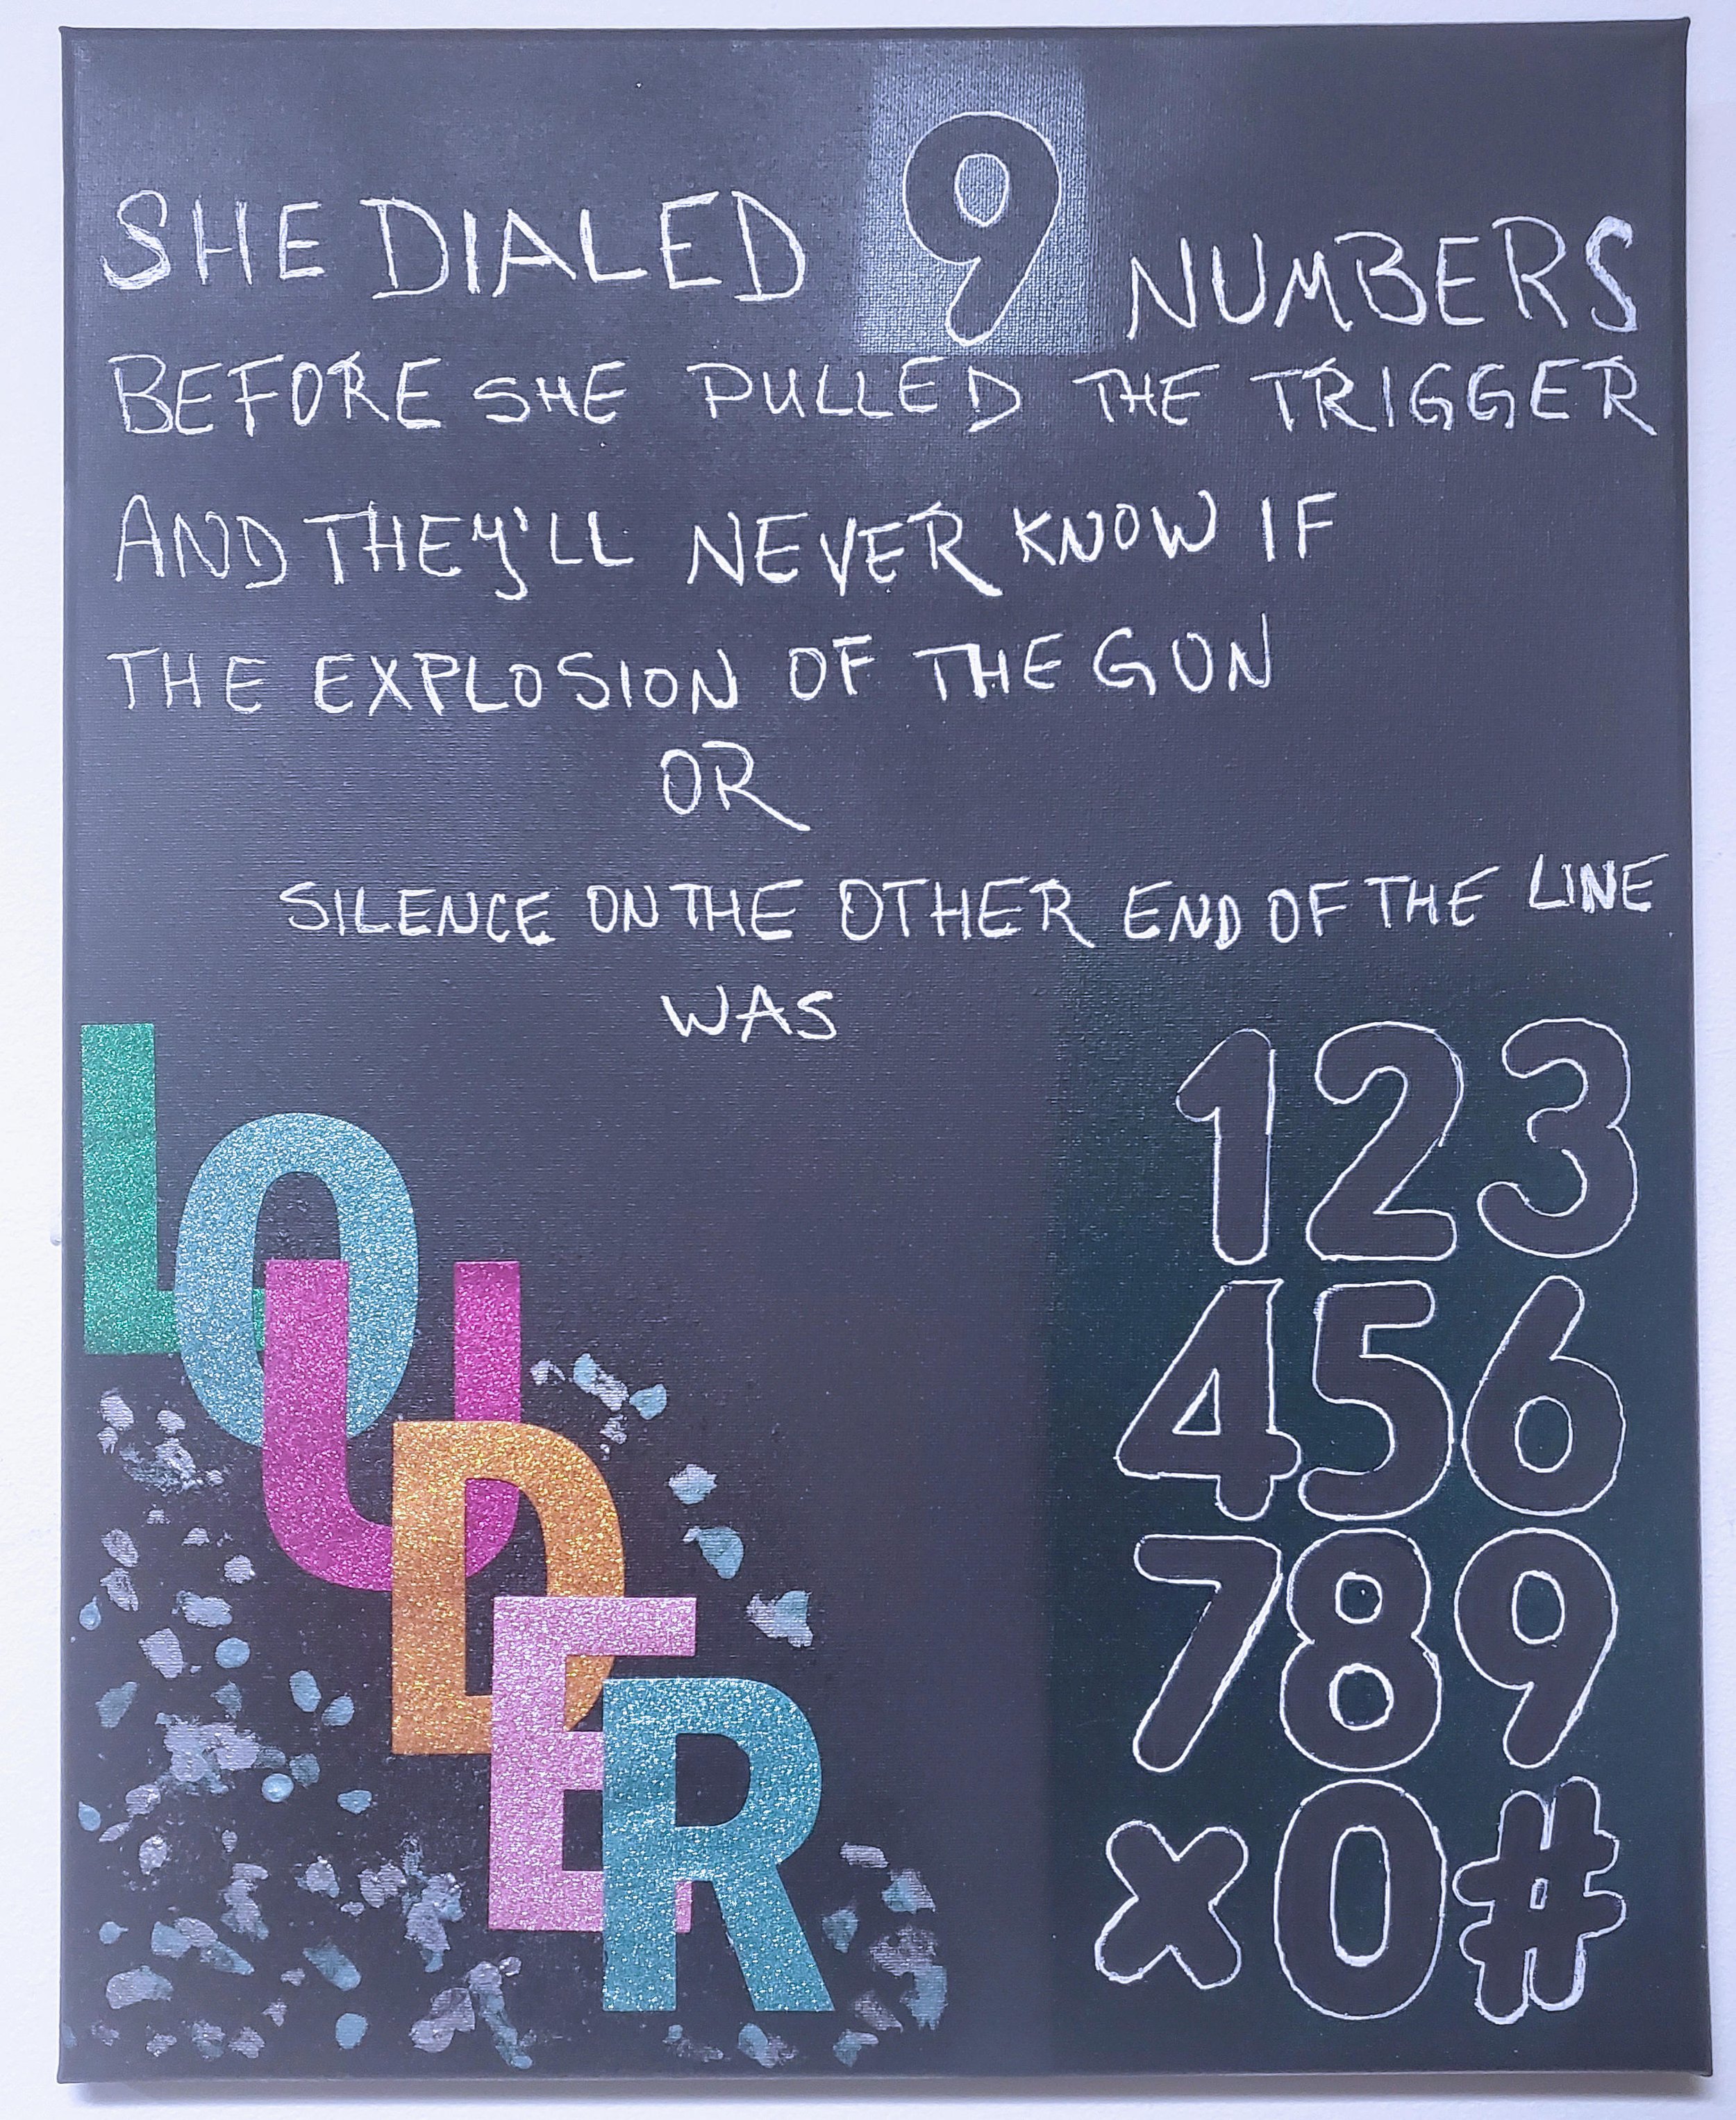 SHE DIALED 9 NUMBERS
BEFORE SHE PULLED THE TRIGGER
AND THEY'LL NEVER KNOW IF
THE EXPLOSION OF THE GUN
OR
SILENCE ON THE OTHER END OF THE LINE
WAS
LOUDER
1 2 3
4 5 6
7 8 9
× 0 #